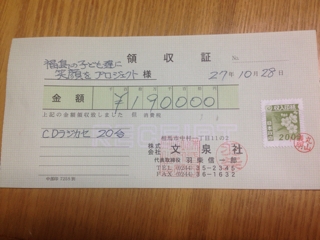 領収証
No.
福島の子ども達に
笑顔をプロジェクト 様
27年10月28日
金額 ¥190000
上記の金額領収致しました
CDラジカセ 20台
200
相馬市中村一丁目11の2
株式会社 文泉社
代表取締役 羽根信一郎
TEL (0244) 35-2345
FAX (0244) 36-1632